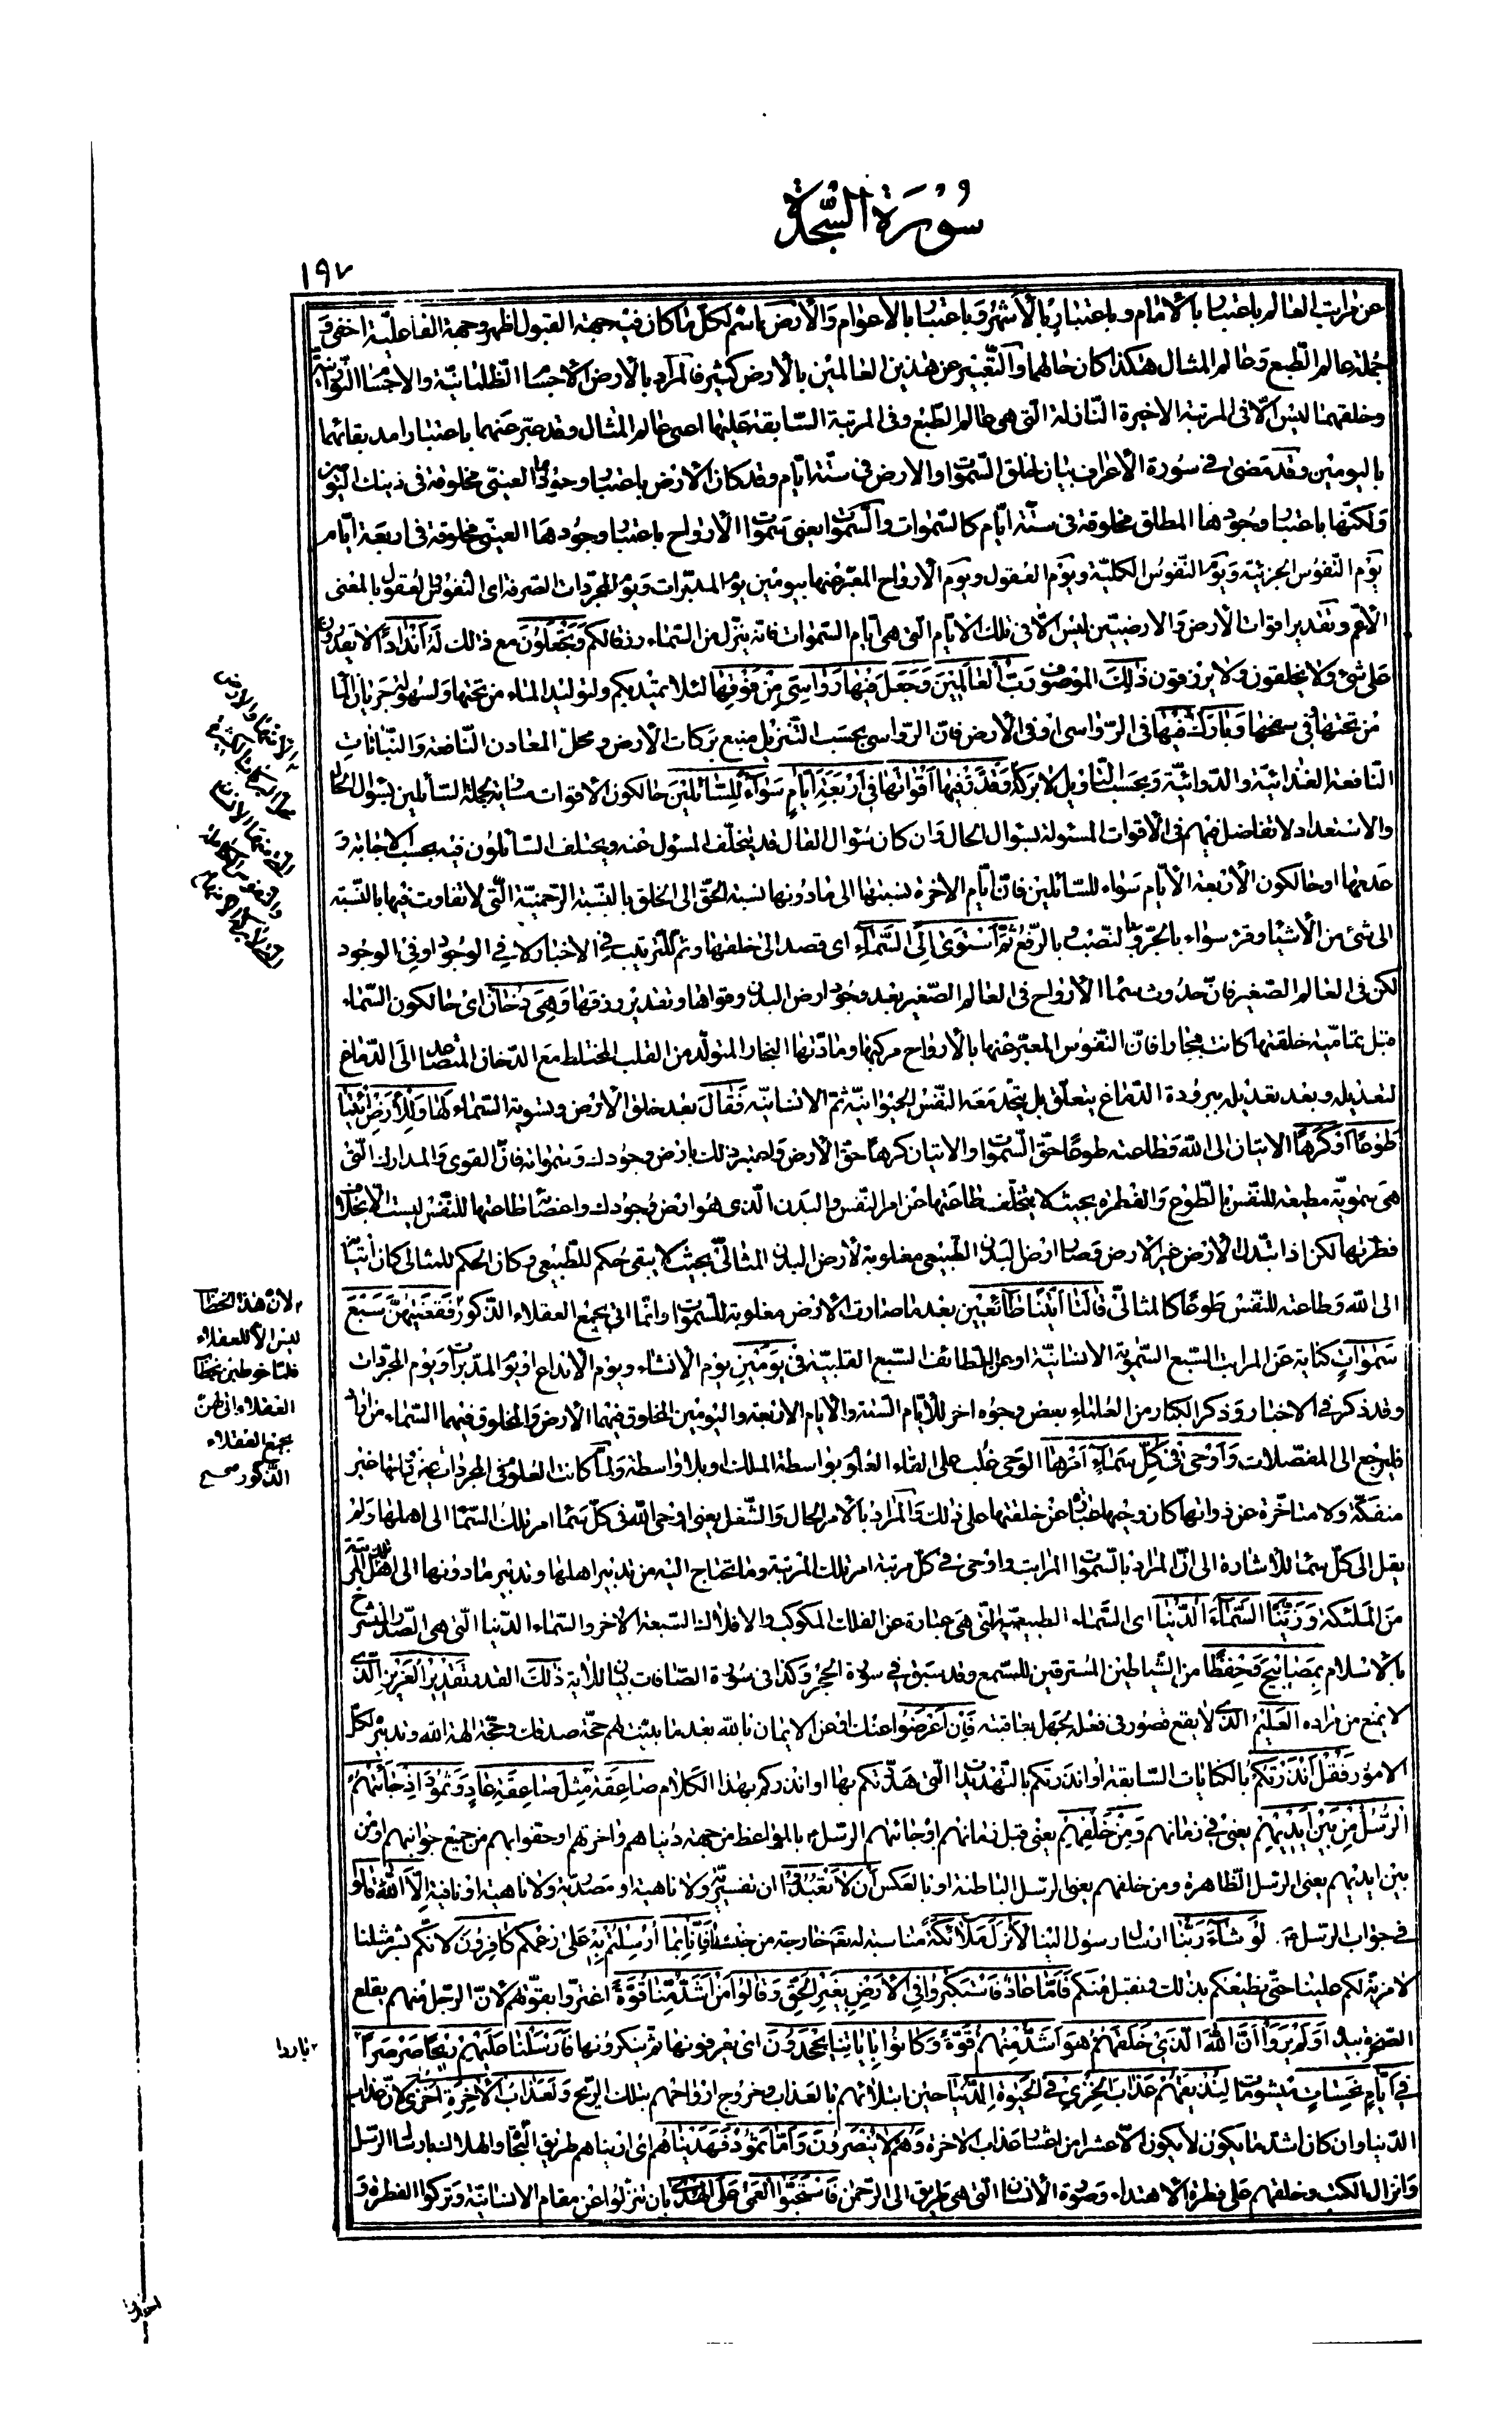 سُورَة السَّجدة
١٩٧
عن مراتب العالم باعتبار بالايام وباعتبار بالاشهر وباعتبار بالاعوام والارض اسم لكل ما كان فيه جهة القبول اظهر وجهة الفاعلية اخفى و
جملة عالم الطبع وعالم المثال هكذا كان حالهما والتعبير عن هذين العالمين بالارض كثير فالمراد بالارض الاجسام الظلمانية والاجسام النورانية
وخلقهما ليس الا فى المرتبة الاخيرة النازلة التى هى عالم الطبع وفى المرتبة السابقة عليها اعنى عالم المثال وقد عبر عنهما باعتبار امد بقائهما
باليومين وقد مضى فى سورة الاعراف بيان لخلق السموات والارض فى ستة ايام وقد كان الارض باعتبار وجودها العينى مخلوقة فى ذينك اليومين
ولكنها باعتبار وجودها المطلق مخلوقة فى ستة ايام كالسموات والسموات يعنى سموات الارواح باعتبار وجودها العينى مخلوقة فى اربعة ايام
يوم النفوس الجزئية ويوم النفوس الكلية ويوم العقول ويوم الارواح المعبر عنها بيومين يوم المدبرات ويوم المجردات الصرفة اى النفوس والعقول بالمعنى
الاعم وتقدير اقوات الارض والارضيين ليس الا فى تلك الايام التى هى ايام السموات فانه ينزل من السماء رزقا لكم وَتَجْعَلُونَ مع ذلك لَهُ أَنْدادًا لا يقدرون
على شئ ولا يخلقون ولا يرزقون ذلِكَ الموصوف رَبُّ الْعالَمِينَ وَجَعَلَ فِيها رَواسِيَ مِنْ فَوْقِها لئلا تميد بكم ولتوليد الماء من تحتها ولسهولة جريان الماء
من تحتها فى سطحها وَبارَكَ فِيها فى الرواسى او فى الارض فان الرواسى بحسب التنزيل منبع بركات الارض ومحل المعادن النافعة والنباتات
النافعة الغذائية والدوائية وبحسب التاويل لا بركة وَقَدَّرَ فِيها أَقْواتَها فِي أَرْبَعَةِ أَيَّامٍ سَواءً لِلسَّائِلِينَ حالكون الاقوات مساوية لجملة السائلين بسؤال الحال
والاستعداد لا تفاضل فيهم فى الاقوات المسئولة بسؤال الحال وان كان سؤال القال قد يتخلف المسؤل عنه ويختلف السائلون فيه بحسب الاجابة و
عدمها او حالكون الاربعة الايام سواء للسائلين فان ايام الاخرة نسبتها الى ما دونها نسبة الحق الى الخلق بالنسبة الرحمنية التى لا تفاوت فيها بالنسبة
الى شئ من الاشياء وقرئ سواء بالجر وبالنصب وبالرفع ثُمَّ اسْتَوى إِلَى السَّماءِ اى قصد الى خلقها وثم للترتيب فى الاخبار لا فى الوجود او فى الوجود
لكن فى العالم الصغير فان حدوث سماء الارواح فى العالم الصغير بعد وجود ارض البدن وقواها وتقدير رزقها وَهِيَ دُخانٌ اى حالكون السماء
قبل تمامية خلقتها كانت بخارا فان النفوس المعبر عنها بالارواح مركبها ومادتها البخار المتولد من القلب المختلط مع الدخان المتصاعد الى الدماغ
لتعديله وبعد تعديله ببرودة الدماغ يتعلق بل يتحد معه النفس الحيوانية ثم الانسانية فَقالَ بعد خلق الارض وتسوية السماء لَها وَلِلْأَرْضِ ائْتِيا
طَوْعًا أَوْ كَرْهًا الاتيان الى الله وطاعته طوعا حق السموات والاتيان كرها حق الارض واعتبر ذلك بارض وجودك وسمواته فان القوى والمدارك التى
هى سموية مطيعة للنفس بالطوع والفطرة بحيث لا يتخلف طاعتها عن امر النفس والبدن الذى هو ارض وجودك واعضاؤه طاعتها للنفس ليست الا بخلاف
فطرتها لكن اذا بدلت الارض غير الارض وصار ارض البدن الطبيعى مغلوبة لارض البدن المثالى بحيث لا يبقى حكم للطبيعى وكان الحكم للمثالى كان اتيانها
الى الله وطاعته للنفس طوعا كالمثالى قالَتا أَتَيْنا طائِعِينَ بعد ما صارت الارض مغلوبة للسموات وانما اتى بجمع العقلاء الذكور فَقَضاهُنَّ سَبْعَ
سَماواتٍ كناية عن المراتب السبع السموية الانسانية او عن اللطائف السبع القلبية فِي يَوْمَيْنِ يوم الانشاء ويوم الابداع او يوم المدبرات ويوم المجردات
وقد ذكر فى الاخبار وذكر الكبار من العلماء بعض وجوه اخر للايام الستة والايام الاربعة واليومين المخلوق فيهما الارض والمخلوق فيهما السماء من اراد
فليرجع الى المفصلات وَأَوْحى فِي كُلِّ سَماءٍ أَمْرَها الوحى غلب على القاء العلوم بواسطة الملك او بلا واسطة ولما كانت العلوم فى المجردات عين ذواتها غير
منفكة ولا متاخرة عن ذواتها كان وحيها عبارة عن خلقتها على ذلك والمراد بالامر الحال والشغل يعنى اوحى الله فى كل سماء امر تلك السماء الى اهلها ولم
يقل الى كل سماء للاشارة الى ان المراد بالسموات المراتب واوحى فى كل مرتبة امر تلك المرتبة وما تحتاج اليه من تدبير اهلها وتدبير ما دونها الى اهل المرتبة
من الملئكة وَزَيَّنَّا السَّماءَ الدُّنْيا اى السماء الطبيعية التى هى عبارة عن الفلك المكوكب والافلاك السبعة الاخر والسماء الدنيا التى هى الصدر المنشرح
بالاسلام بِمَصابِيحَ وَحِفْظًا من الشياطين المسترقين للسمع وقد سبق فى سورة الحجر وكذا فى سورة الصافات بيان للاية ذلِكَ القدر تَقْدِيرُ الْعَزِيزِ الذى
لا يمنع من مراده الْعَلِيمِ الذى لا يقع قصور فى فعله لجهل بعاقبته فَإِنْ أَعْرَضُوا عنك او عن الايمان بالله بعد ما بينت لهم حجة صدقك وحجة الهة الله وتدبيره لكل
الامور فَقُلْ أَنْذَرْتُكُمْ بالكنايات السابقة او انذرتكم بالتهديدات التى هددتكم بها او انذركم بهذا الكلام صاعِقَةً مِثْلَ صاعِقَةِ عادٍ وَثَمُودَ إِذْ جاءَتْهُمُ
الرُّسُلُ مِنْ بَيْنِ أَيْدِيهِمْ يعنى فى زمانهم وَمِنْ خَلْفِهِمْ يعنى قبل زمانهم او جائتهم الرسل بالمواعظ من جهة دنياهم واخرتهم او حقوا بهم من جميع جوانبهم او من
بين ايديهم يعنى الرسل الظاهرة ومن خلفهم يعنى الرسل الباطنة او بالعكس أَلَّا تَعْبُدُوا ان تفسيرية ولا ناهية او مصدرية ولا ناهية او نافية إِلَّا اللَّهَ قالُوا
فى جواب الرسل لَوْ شاءَ رَبُّنا ارسال رسول الينا لَأَنْزَلَ مَلائِكَةً مناسبة له غير خارجة من جنسه فَإِنَّا بِما أُرْسِلْتُمْ بِهِ على زعمكم كافِرُونَ لانكم بشر مثلنا
لا مزية لكم علينا حتى نطيعكم بذلك ونقبل منكم فَأَمَّا عادٌ فَاسْتَكْبَرُوا فِي الْأَرْضِ بِغَيْرِ الْحَقِّ وَقالُوا مَنْ أَشَدُّ مِنَّا قُوَّةً اغتروا بقوتهم لان الرجل منهم يقلع
الصخرة بيده أَوَلَمْ يَرَوْا أَنَّ اللَّهَ الَّذِي خَلَقَهُمْ هُوَ أَشَدُّ مِنْهُمْ قُوَّةً وَكانُوا بِآياتِنا يَجْحَدُونَ اى يعرفونها ثم ينكرونها فَأَرْسَلْنا عَلَيْهِمْ رِيحًا صَرْصَرًا
فِي أَيَّامٍ نَحِساتٍ ميشومات لِنُذِيقَهُمْ عَذابَ الْخِزْيِ فِي الْحَياةِ الدُّنْيا حين ابتلائهم بالعذاب وخروج ارواحهم بتلك الريح وَلَعَذابُ الْآخِرَةِ أَخْزى لان عذاب
الدنيا وان كان اشد ما يكون لا يكون الا عشرا من اعشار عذاب الاخرة وَهُمْ لا يُنْصَرُونَ وَأَمَّا ثَمُودُ فَهَدَيْناهُمْ اى اريناهم طريق النجاة والهلاك بارسال الرسل
وانزال الكتب وخلقهم على فطرة الاهتداء وصورة الانسان التى هى طريق الى الرحمن فَاسْتَحَبُّوا الْعَمى عَلَى الْهُدى بان تنزلوا عن مقام الانسانية وتركوا الفطرة و
لان هذا الخطاب
ليس الا للعقلاء
فلما خوطبن بخطاب
العقلاء اتى لهن
بجمع العقلاء
الذكور صح
باردا